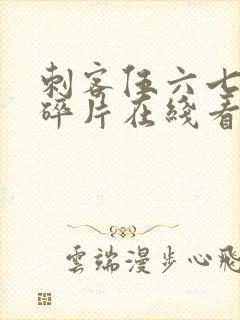 刺客伍六七
碎片在线看
雲端漫步心飛